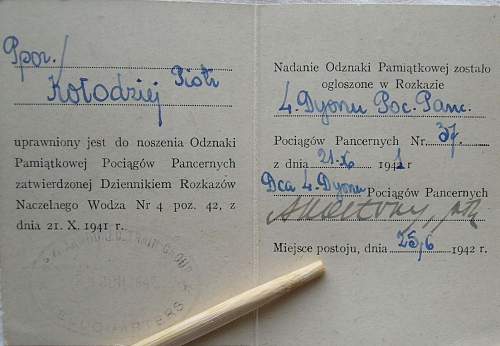 Ppor.
Kołodziej Piotr
uprawniony jest do noszenia Odznaki
Pamiątkowej Pociągów Pancernych
zatwierdzonej Dziennikiem Rozkazów
Naczelnego Wodza Nr 4 poz. 42, z
dnia 21. X. 1941 r.
HEADQUARTERS
Nadanie Odznaki Pamiątkowej zostało
ogłoszone w Rozkazie
4. Dyonu Poc. Panc.
Pociągów Pancernych Nr. 37.
z dnia 21.X 1941 r
Dca 4. Dyonu Pociągów Pancernych
Miejsce postoju, dnia 25,6 1942 r.